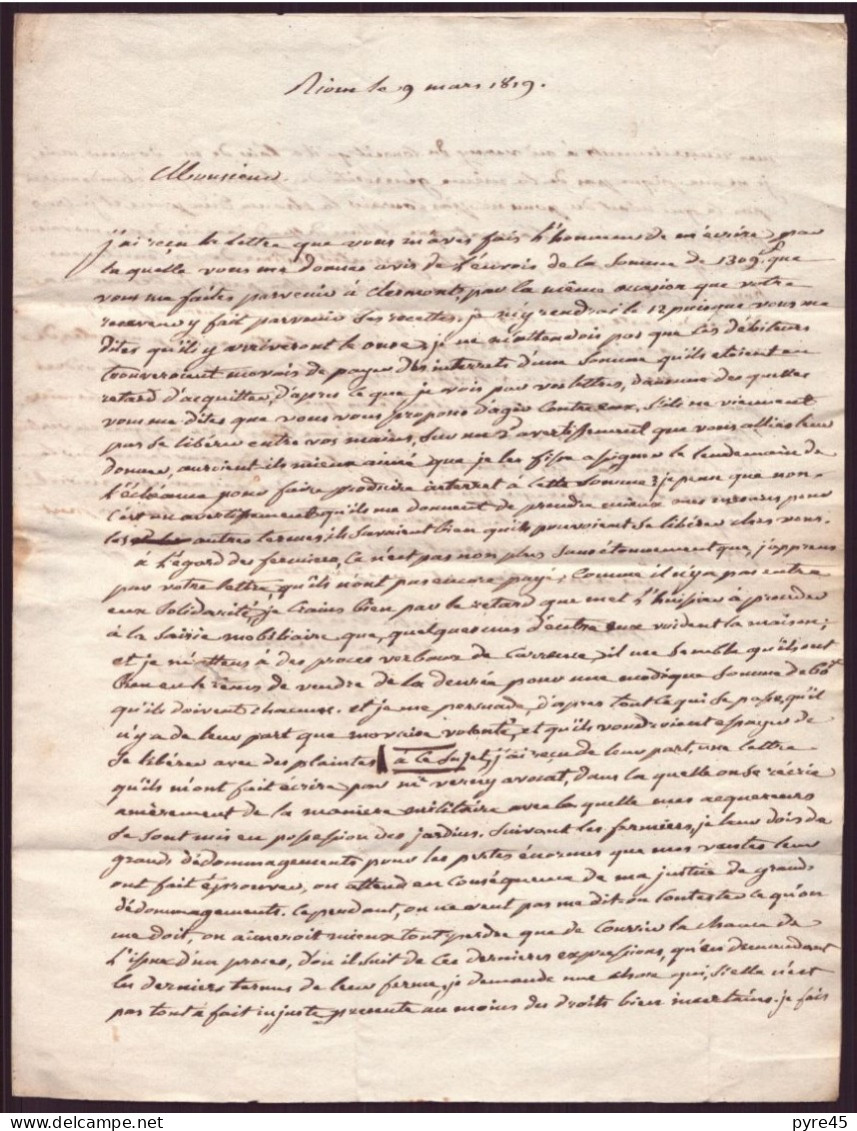 Riom le 9 mars 1819.
Monsieur.
j'ai reçu la lettre que vous m'avés fais l'honneur de m'écrire, par
la quelle vous me donnes avis de l'envoi de la somme de 1309.# que
vous me faites parvenir à Clermont, par la même occasion que votre
receveur y fait parvenir ses recettes. je m'y rendrai le 12 puisque vous me
dites qu'ils y arriveront le onze; je ne m'attendois pas que les débiteurs
trouveroient mauvais de payer des interrets d'une somme qu'ils etoient en
retard d'acquitter, d'apres ce que je vois par vos lettres, dans une des quelles
vous me dites que vous vous proposes d'agir contre eux, s'ils ne viennent
pas se libérer entre vos mains, sur un 2e avertissement que vous alliés leur
donner, auroient ils mieux aimé que je les fisse assigner le lendemain de
l'échéance pour faire produire interret à cette somme; je pense que non.
c'est un avertissement qu'ils me donnent de prendre mieux mes mesures pour
les autres termes, ils savaient bien qu'ils pouvoient se libérer chés vous.
à l'égard des fermiers, ce n'est pas non plus sans étonnement que j'apprens
par votre lettre, qu'ils n'ont pas encore payé; comme il n'y a pas entre
eux solidarité, je crains bien par le retard que met l'huissier à proceder
à la saisie mobiliaire que, quelques uns d'entre eux vuident la maison;
et je m'attens à des proces verbaux de carrence, il me semble qu'ils ont
bien eu le tems de vendre de la denrée pour une modique somme de 60#
qu'ils doivent chacun. et je me persuade, d'apres tout ce qui se passe, qu'il
n'y a de leur part que mauvaise volonté, et qu'ils voudroient essayer de
se libérer avec des plaintes. à ce sujet, j'ai reçu de leur part, une lettre
qu'ils m'ont fait écrire par mr verny avocat, dans la quelle on se récrie
amèrement de la maniere militaire avec la quelle mes acquereurs
se sont mis en possession des jardins. suivant les fermiers, je leur dois de
grands dédommagements pour les pertes énormes que mes ventes leur
ont fait éprouver, on attend en conséquence de ma justice de grands
dédommagements. cependant, on ne veut pas me dit on contester ce qu'on
me doit, on aimeroit mieux tout perdre que de courir la chance de
l'issue d'un proces, d'où il suit de ces dernieres expressions, qu'en demandant
les derniers termes de leur ferme, je demande une chose qui, si elle n'est
pas tout à fait injuste presente au moins des droits bien incertains. je fais
pyre45